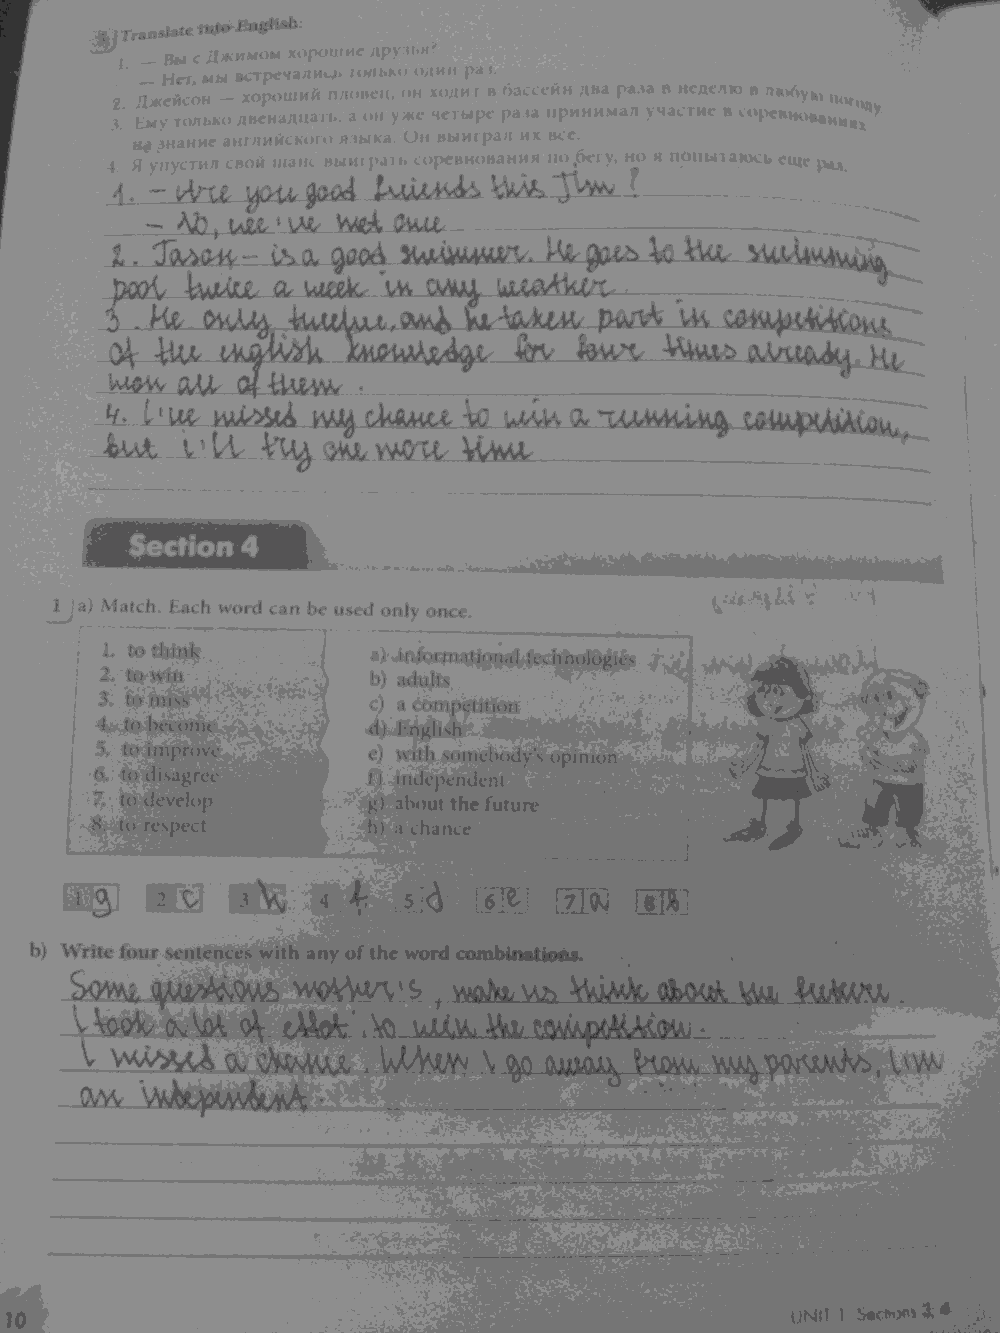 Translate into English:
1. — Вы с Джимом хорошие друзья?
— Нет, мы встречались только один раз.
2. Джейсон — хороший пловец, он ходит в бассейн два раза в неделю в любую погоду.
3. Ему только двенадцать, а он уже четыре раза принимал участие в соревнованиях
на знание английского языка. Он выиграл их все.
4. Я упустил свой шанс выиграть соревнования по бегу, но я попытаюсь еще раз.
1. – Are you good friends this Jim ?
– No, we've met once
2. Jason – is a good swimmer. He goes to the swimming
pool twice a week in any weather
3. He only twelve, and he taken part in competitions
of the english knowledge for four times already. He
won all of them.
4. I've missed my chance to win a running competition,
but i'll try one more time
Section 4
1 a) Match. Each word can be used only once.
1. to think
2. to win
3. to miss
4. to become
5. to improve
6. to disagree
7. to develop
8. to respect
a) informational technologies
b) adults
c) a competition
d) English
e) with somebody's opinion
f) independent
g) about the future
h) a chance
1 g 2 c 3 h 4 f 5 d 6 e 7 a 8 b
b) Write four sentences with any of the word combinations.
Some questions mother's, make us think about the future.
I took a lot of effot to win the competition.
I missed a chance. When I go away from my parents, I'm
an independent.
10
UNIT 1 Sections 3, 4